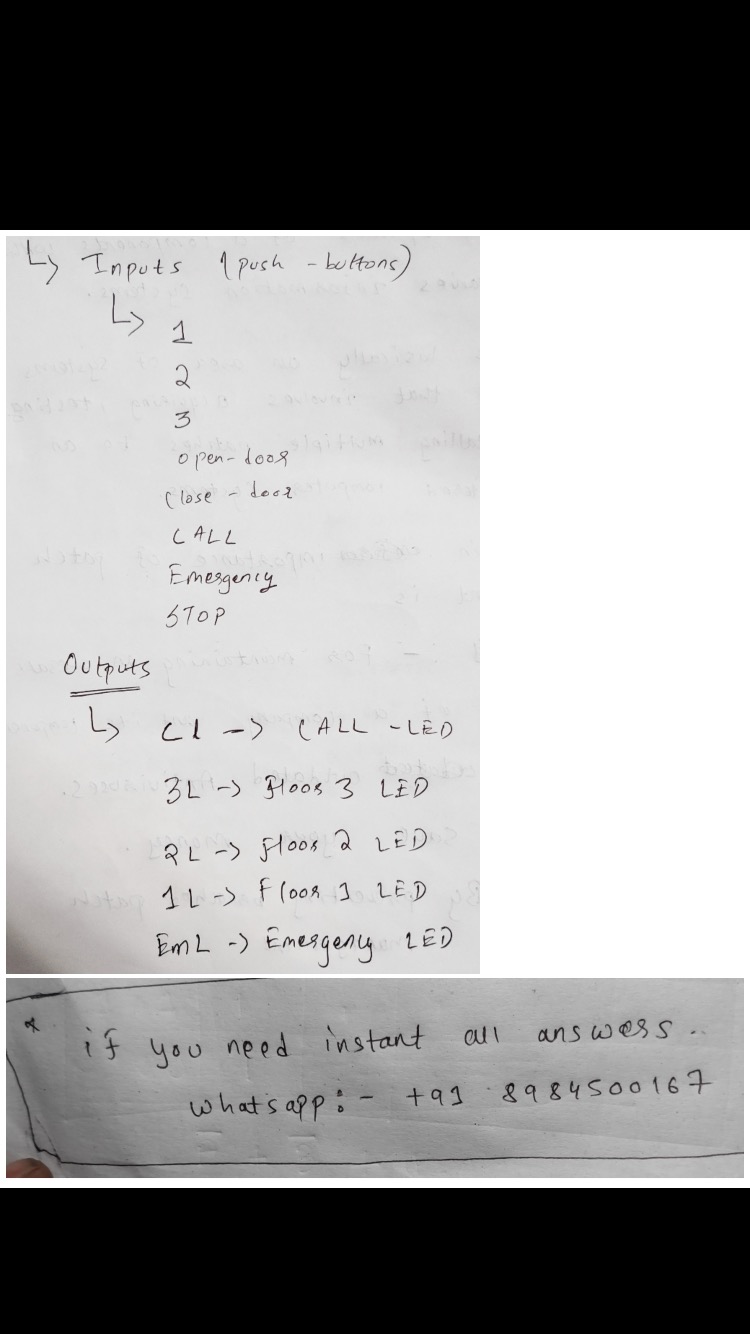 ↳ Inputs (push - buttons)
↳ 1
2
3
open-door
close - door
CALL
Emergency
STOP
Outputs
↳ CL -> CALL - LED
3L -> Floor 3 LED
2L -> Floor 2 LED
1L -> Floor 1 LED
EmL -> Emergency LED
* if you need instant all answers..
whatsapp :- +91 8984500167